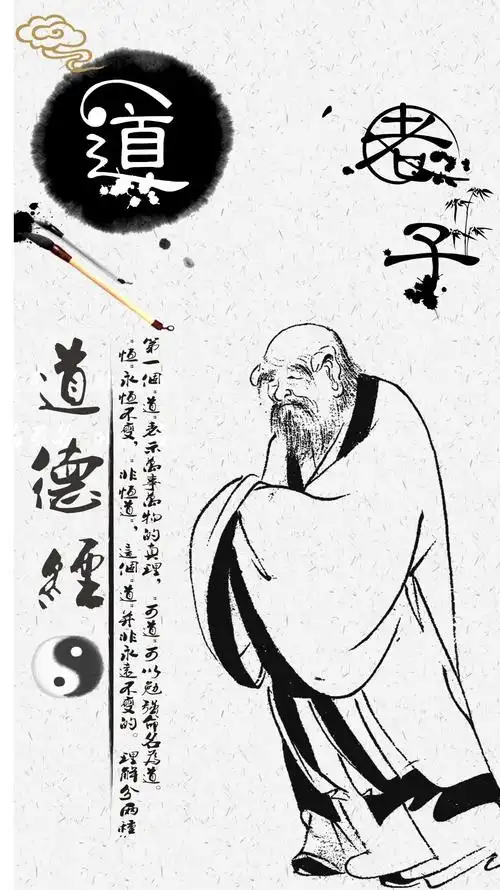 道
老子
道德經
第一個“道”表示萬事萬物的真理，“可道”可以勉強命名為道。
“恆”永恆不變，“非恆道”，這個“道”并非永遠不變的。理解分兩種